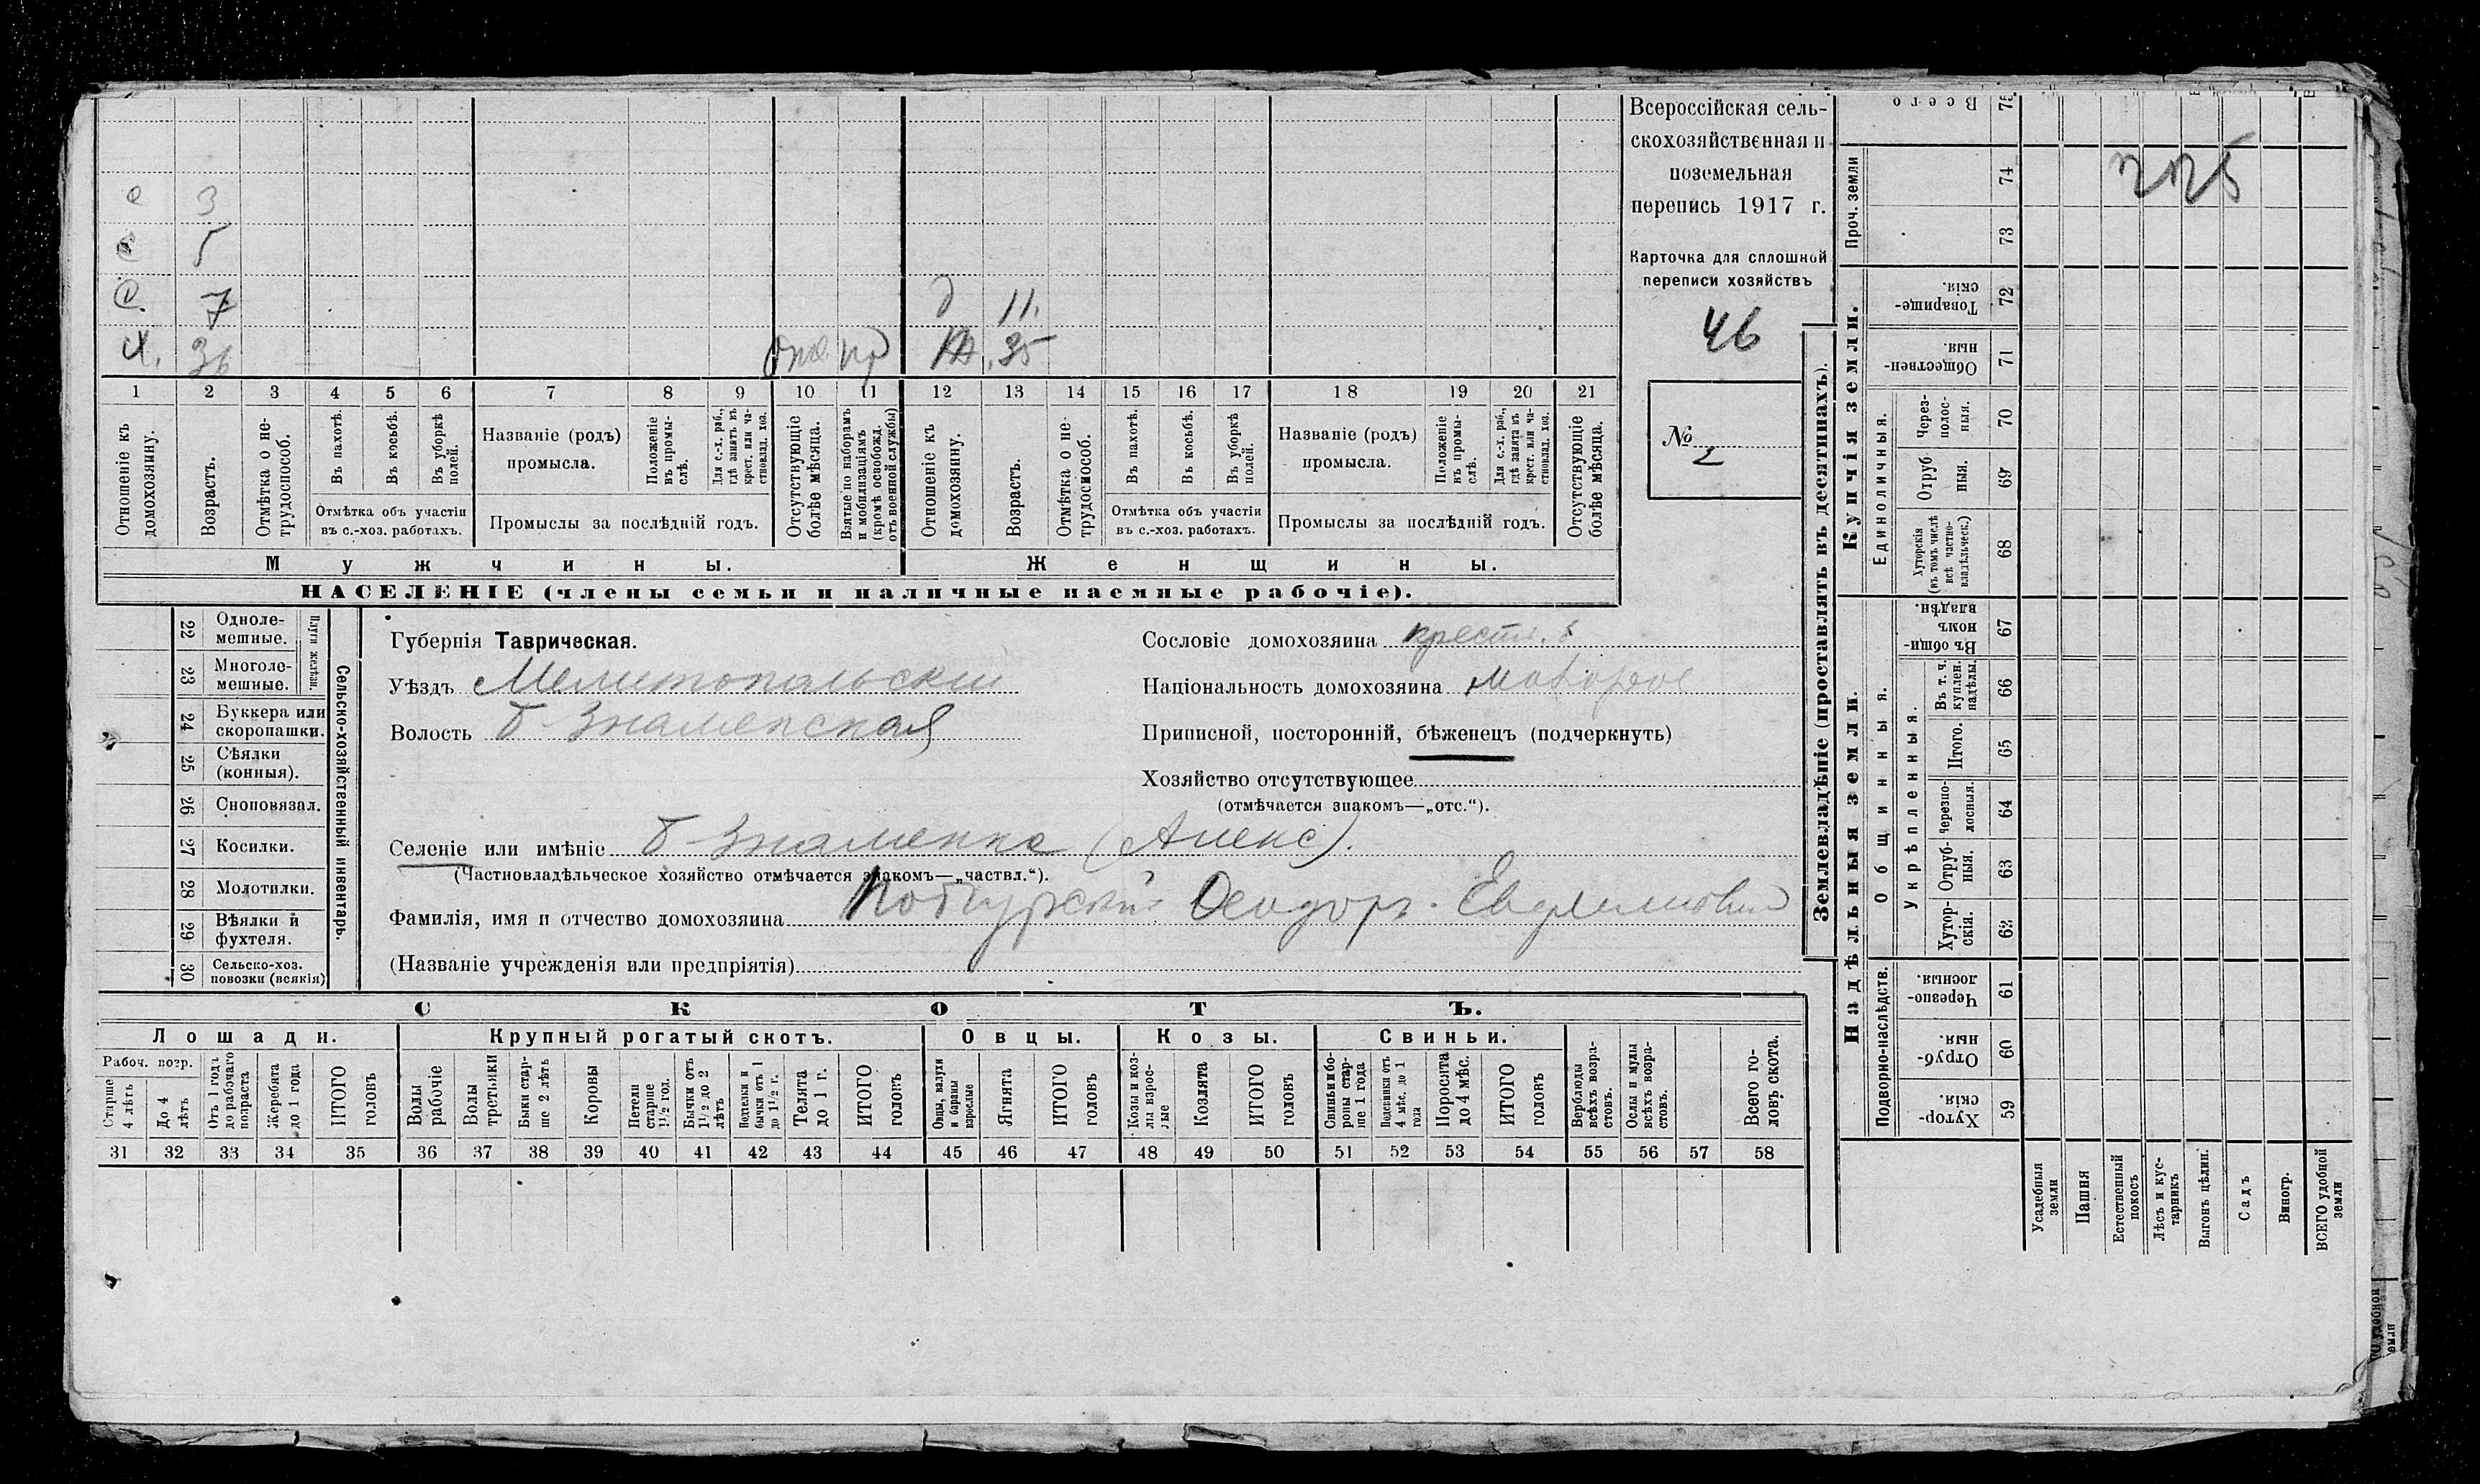 Всероссійская сель-
скохозяйственная и
поземельная
перепись 1917 г.
Карточка для сплошной
переписи хозяйствъ
46
№
2
225
с 3
с 5
с. 7 д 11.
х. 36 35
1 2 3 4 5 6 7 8 9 10 11 12 13 14 15 16 17 18 19 20 21
Отношеніе къ домохозяину.
Возрастъ.
Отмѣтка о не-трудоспособ.
Въ пахотѣ.
Въ косьбѣ.
Въ уборкѣ полей.
Отмѣтка объ участіи
въ с.-хоз. работахъ.
Названіе (родъ)
промысла.
Положеніе въ промы-слѣ.
Для с.-х. раб., гдѣ занятъ въ крест. или ча-стновлад. хоз.
Промыслы за послѣдній годъ.
Отсутствующіе болѣе мѣсяца.
Взятые по наборамъ и мобилизаціямъ (кромѣ освобожд. отъ военной службы)
Отношеніе къ домохозяину.
Возрастъ.
Отмѣтка о не-трудоспособ.
Въ пахотѣ.
Въ косьбѣ.
Въ уборкѣ полей.
Отмѣтка объ участіи
въ с.-хоз. работахъ.
Названіе (родъ)
промысла.
Положеніе въ промы-слѣ.
Для с.-х. раб., гдѣ занята въ крест. или ча-стновлад. хоз.
Промыслы за послѣдній годъ.
Отсутствующіе болѣе мѣсяца.
Мужчины. Женщины.
НАСЕЛЕНІЕ (члены семьи и наличные наемные рабочіе).
Сельско-хозяйственный инвентарь.
Плуги желѣзн.
22 Одноле-мешные.
23 Многоле-мешные.
24 Буккера или скоропашки.
25 Сѣялки (конныя).
26 Сноповязал.
27 Косилки.
28 Молотилки.
29 Вѣялки и фухтеля.
30 Сельско-хоз. повозки (всякія)
Губернія Таврическая.
Уѣздъ Мелитопольскій
Волость Б-Знаменская
Сословіе домохозяина крест.
Національность домохозяина малорос
Приписной, посторонній, бѣженецъ (подчеркнуть)
Хозяйство отсутствующее
(отмѣчается знакомъ—„отс.“).
Селеніе или имѣніе Б-Знаменка (Алекс).
(Частновладѣльческое хозяйство отмѣчается знакомъ—„частвл.“).
Фамилія, имя и отчество домохозяина Ѳеодоръ
(Названіе учрежденія или предпріятія)
СКОТЪ.
Лошади. Крупный рогатый скотъ. Овцы. Козы. Свиньи.
Рабоч. возр.
Старше 4 лѣтъ
До 4 лѣтъ
Отъ 1 года до рабочаго возраста
Жеребята до 1 года
ИТОГО головъ
Волы рабочіе
Волы третьяки
Быки стар-ше 2 лѣтъ
Коровы
Нетели старше 1½ год.
Бычки отъ 1½ до 2 лѣтъ
Подтелки и бычки отъ 1 до 1½ г.
Телята до 1 г.
ИТОГО головъ
Овцы, валухи и бараны взрослые
Ягнята
ИТОГО головъ
Козы и коз-лы взрос-лые
Козлята
ИТОГО головъ
Свиньи и бо-ровы стар-ше 1 года
Подсвинки отъ 4 мѣс. до 1 года
Поросята до 4 мѣс.
ИТОГО головъ
Верблюды всѣхъ возра-стовъ.
Ослы и мулы всѣхъ возра-стовъ.
Всего го-ловъ скота.
31 32 33 34 35 36 37 38 39 40 41 42 43 44 45 46 47 48 49 50 51 52 53 54 55 56 57 58
Землевладѣніе (проставлять въ десятинахъ).
Всего 75
Проч. земли
74
73
Купчія земли.
Товарище-скія. 72
Обществен-ныя. 71
Единоличныя.
Через-полос-ныя. 70
Отруб-ныя. 69
Хуторскія (въ томъ числѣ всѣ частно-владѣльческ.) 68
Надѣльныя земли.
Общинныя.
Въ общи-номъ владѣн. 67
Укрѣпленныя.
Въ т. ч. куплен. надѣлы. 66
Итого. 65
Черезпо-лосныя. 64
Отруб-ныя. 63
Хутор-скія. 62
Подворно-наслѣдств.
Черезпо-лосныя. 61
Отруб-ныя. 60
Хутор-скія. 59
Усадебныя земли
Пашня
Естественный покосъ
Лѣсъ и кус-тарникъ
Выгонъ цѣлин.
Садъ
Виногр.
ВСЕГО удобной земли